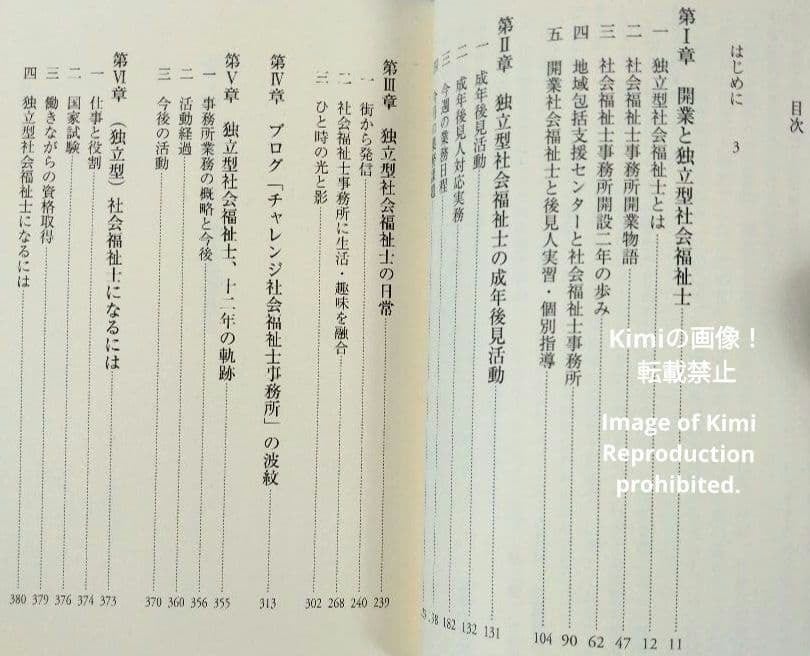 目次
はじめに 3
第Ⅰ章 開業と独立型社会福祉士 11
一 独立型社会福祉士とは 12
二 社会福祉士事務所開業物語 47
三 社会福祉士事務所開設二年の歩み 62
四 地域包括支援センターと社会福祉士事務所 90
五 開業社会福祉士と後見人実習・個別指導 104
第Ⅱ章 独立型社会福祉士の成年後見活動 131
一 成年後見活動 132
二 成年後見人対応実務 182
三 今週の業務日程
四
第Ⅲ章 独立型社会福祉士の日常 239
一 街から発信 240
二 社会福祉士事務所に生活・趣味を融合 268
三 ひと時の光と影 302
第Ⅳ章 ブログ「チャレンジ社会福祉士事務所」の波紋 313
第Ⅴ章 独立型社会福祉士、十二年の軌跡 355
一 事務所業務の概略と今後 356
二 活動経過 360
三 今後の活動 370
第Ⅵ章 (独立型)社会福祉士になるには 373
一 仕事と役割 374
二 国家試験 376
三 働きながらの資格取得 379
四 独立型社会福祉士になるには 380
Kimiの画像!
転載禁止
Image of Kimi
Reproduction
prohibited.